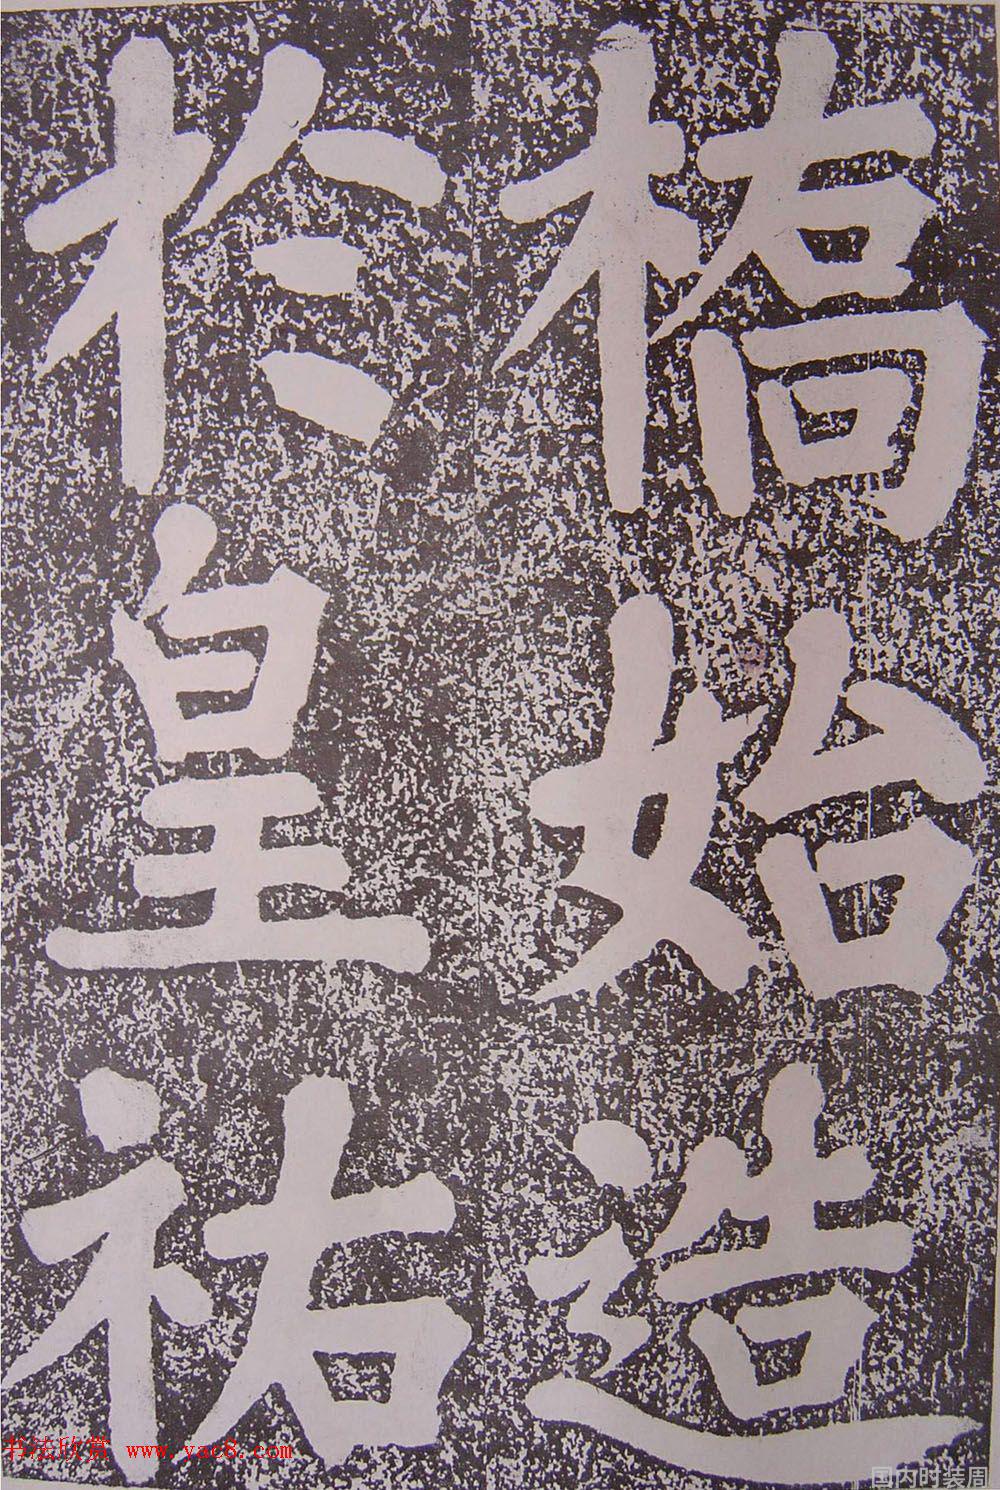 橋始造
於皇祐
书法欣赏 www.yac8.com
国内时装周